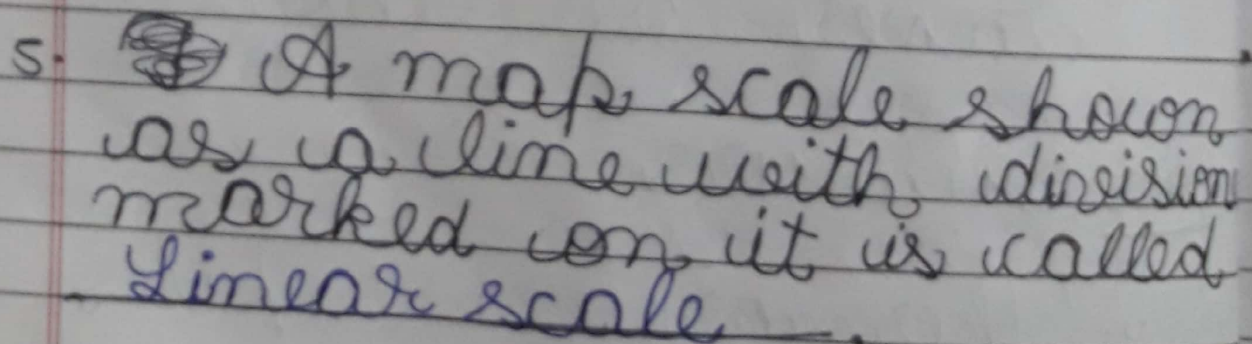 5. A map scale shown
as a line with division
marked on it is called
Linear scale.